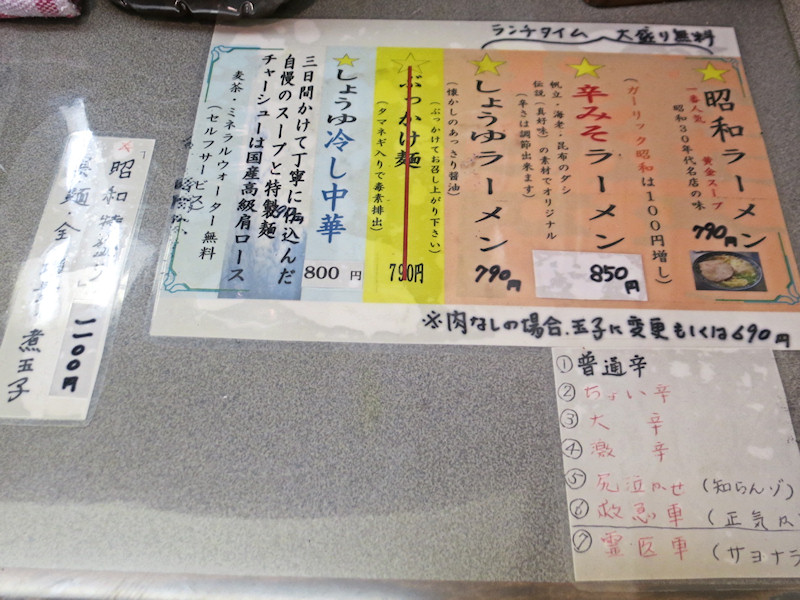 ランチタイム 大盛り無料
昭和ラーメン
一番人気 黄金スープ
昭和30年代名店の味
790円
(ガーリック昭和は100円増し)
辛みそラーメン
帆立・海老・昆布のダシ
伝説(真好味)の素材でオリジナル
(辛さは調節出来ます)
850円
しょうゆラーメン
(懐かしのあっさり醤油)
790円
ぶっかけ麺
(ぶっかけてお召し上がり下さい)
(タマネギ入りで毒素排出)
790円
しょうゆ冷し中華
800円
三日間かけて丁寧に仕込んだ
自慢のスープと特製麺
チャーシューは国産高級肩ロース
麦茶・ミネラルウォーター無料
(セルフサービス)
※肉なしの場合、玉子に変更もしくは690円
昭和
麺・全
煮玉子
一一〇〇円
①普通辛
②ちょい辛
③大辛
④激辛
⑤死泣かせ(知らんゾ)
⑥救急車(正気
⑦霊医車(サヨナラ